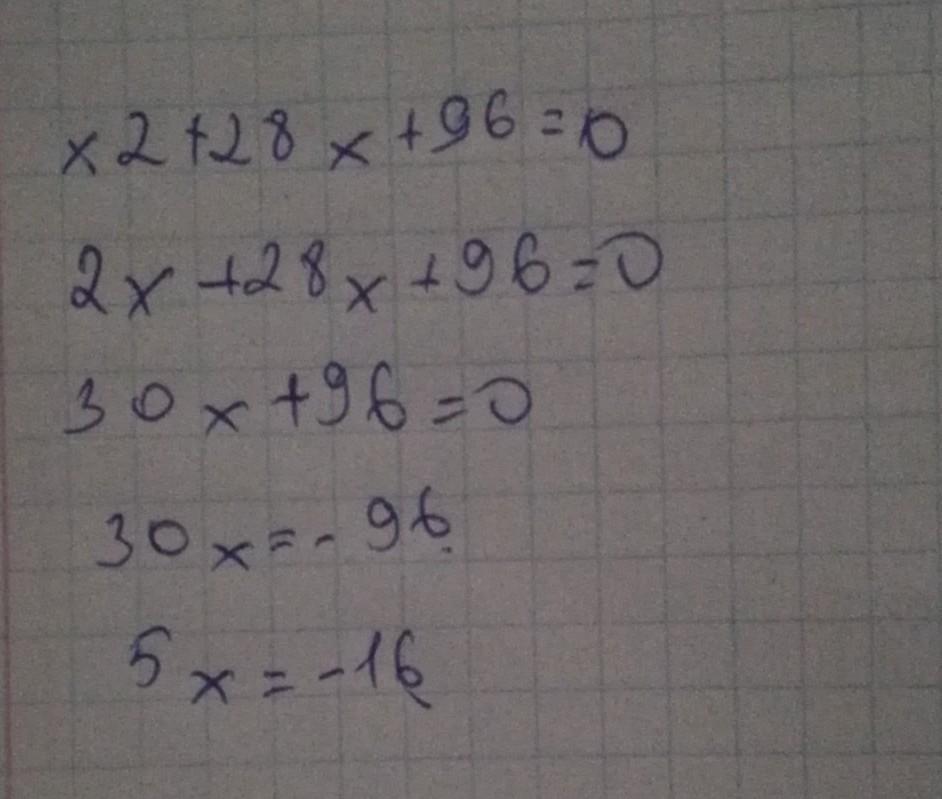 x2+28x+96=0
2x+28x+96=0
30x+96=0
30x=-96
5x=-16